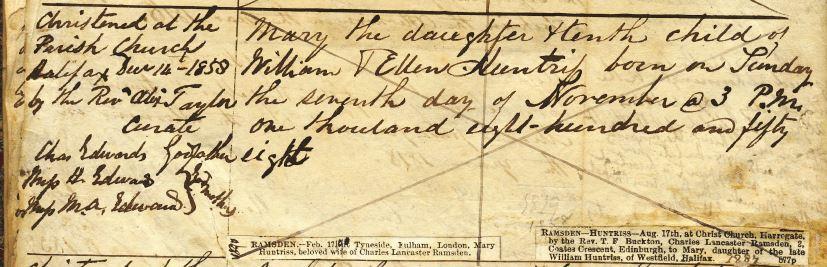 Christened at the
Parish Church
Halifax Decr 14 - 1858
by the Revd Alex Taylor
Curate
Chas Edwards Godfather
Miss H. Edwards
Miss M. A. Edwards
Mary the daughter & tenth child of
William & Ellen Huntriss born on Sunday
the seventh day of November @ 3 P.M.
one thousand eight-hundred and fifty
eight
RAMSDEN.—Feb. 17, at Tyneside, Fulham, London, Mary
Huntriss, beloved wife of Charles Lancaster Ramsden.
RAMSDEN—HUNTRISS—Aug. 17th, at Christ Church, Harrogate,
by the Rev. T. F Buckton, Charles Lancaster Ramsden, 2,
Coates Crescent, Edinburgh, to Mary, daughter of the late
William Huntriss, of Westfield, Halifax.
877p